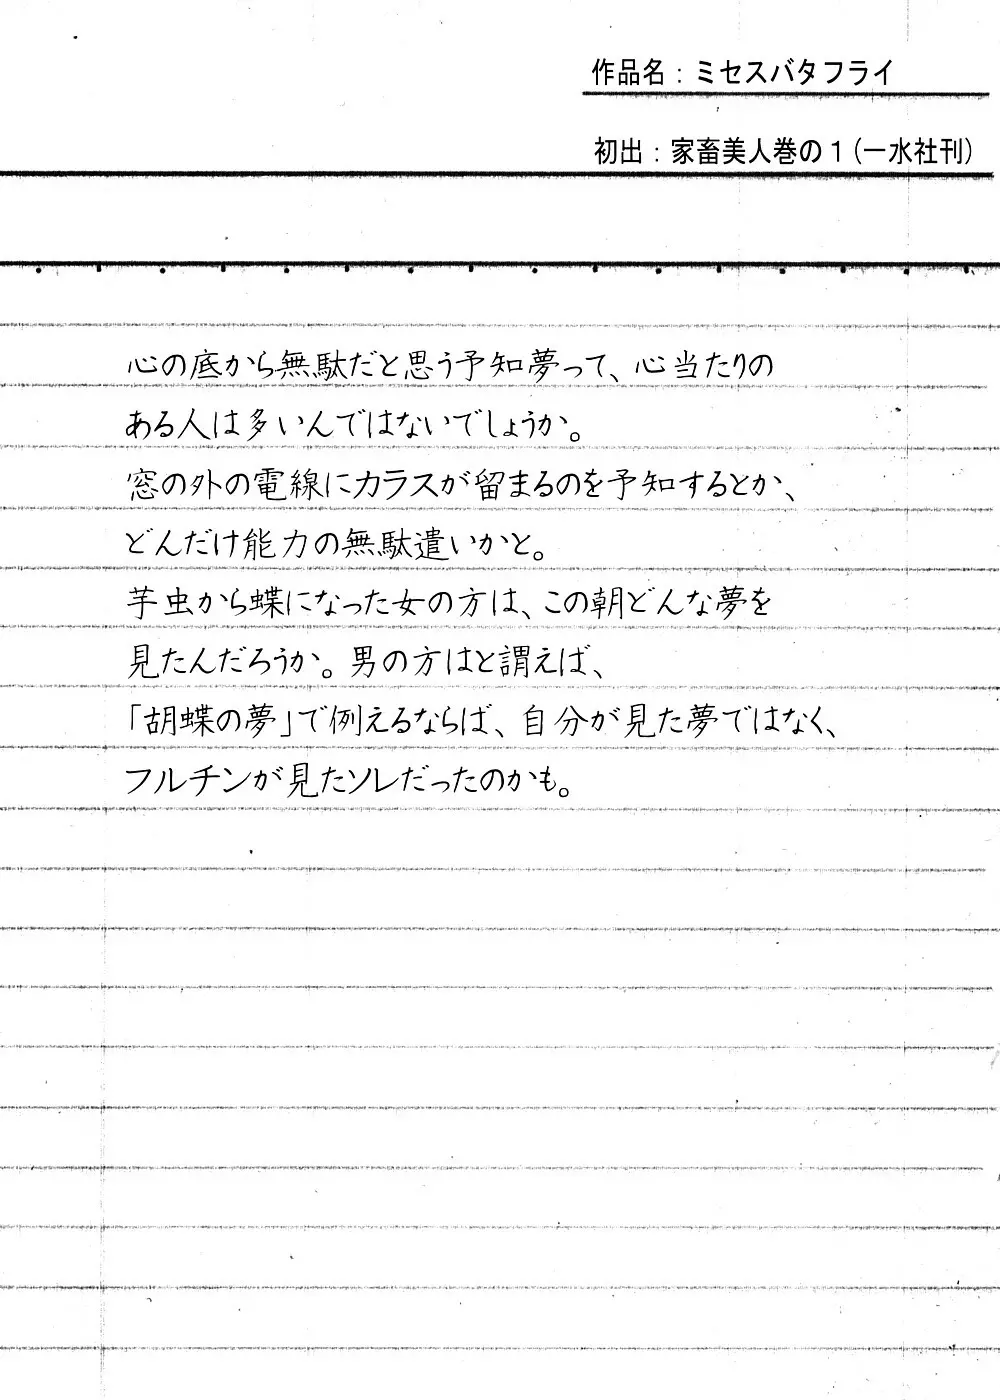 作品名：ミセスバタフライ
初出：家畜美人巻の1(一水社刊)
心の底から無駄だと思う予知夢って、心当たりの
ある人は多いんではないでしょうか。
窓の外の電線にカラスが留まるのを予知するとか、
どんだけ能力の無駄遣いかと。
芋虫から蝶になった女の方は、この朝どんな夢を
見たんだろうか。男の方はと謂えば、
「胡蝶の夢」で例えるならば、自分が見た夢ではなく、
フルチンが見たソレだったのかも。